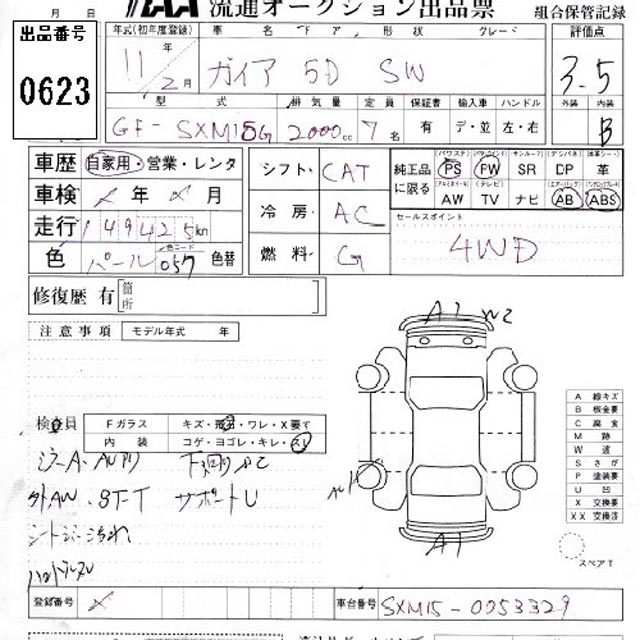 月 日
流通オークション出品票
組合保管記録
出品番号
0623
年式(初年度登録) 車名 ドア 形状 グレード
11年 2月 ガイア 5D SW
評価点
3.5
外装 内装
B
型式 排気量 定員 保証書 輸入車 ハンドル
GF-SXM15G 2000cc 7名 有 デ・並 左・右
車歴 自家用・営業・レンタ
車検 年 月
走行 149425km
色 パール 色コード 057 色替
シフト CAT
冷房 AC
燃料 G
純正品に限る
PS PW SR DP 革
AW TV ナビ AB ABS
セールスポイント
4WD
修復歴 有 箇所
注意事項 モデル年式 年
A1 W2
検査員
Fガラス キズ・飛石・ワレ・X要す
内装 コゲ・ヨゴレ・キレ・スレ
サポートU
A1
A 線キズ
B 板金要
C 腐食
M 跡
W 波
S さび
P 塗装要
U 凹
X 交換要
XX 交換済
スペアT
登録番号
車台番号 SXM15-0053329